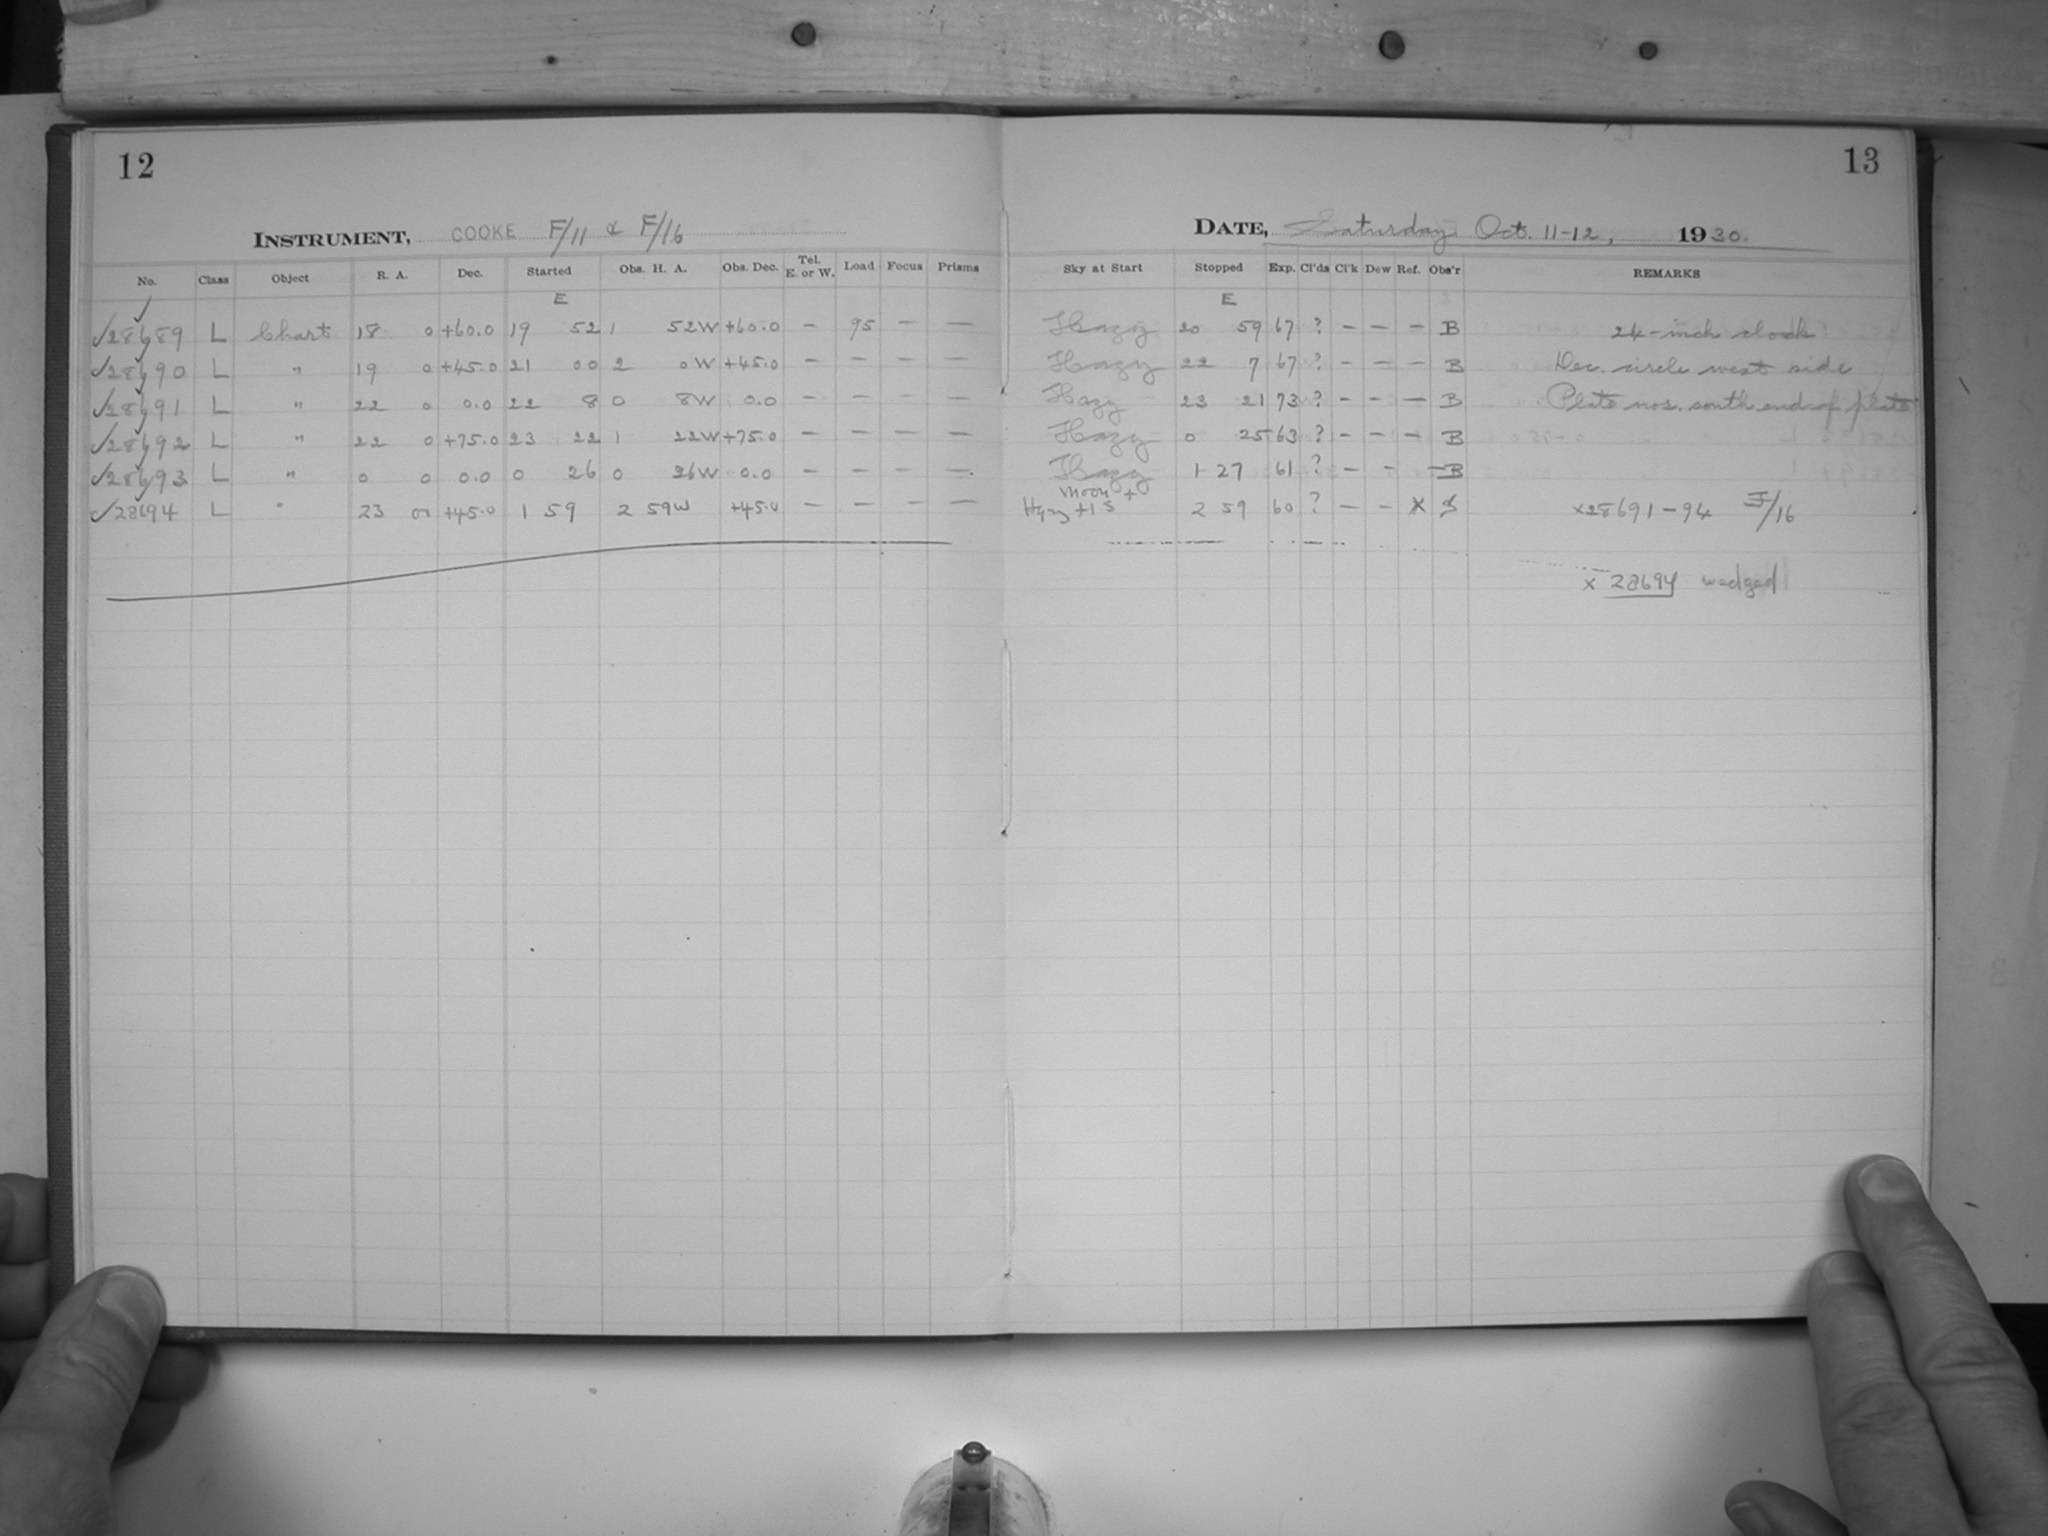 12
13
INSTRUMENT, COOKE F/11 & F/16
DATE, Saturday Oct. 11-12, 1930.
No. Class Object R. A. Dec. Started Obs. H. A. Obs. Dec. Tel. E. or W. Load Focus Prisms Sky at Start Stopped Exp. Cl'ds Cl'k Dew Ref. Obs'r REMARKS
E E
✓28689 L Chart 18 0 +60.0 19 52 1 52W +60.0 — 95 — — Hazy 20 59 67 ? — — — B 24-inch clock
✓28690 L " 19 0 +45.0 21 00 2 0W +45.0 — — — — Hazy 22 7 67 ? — — — B Dec. circle west side
✓28691 L " 22 0 0.0 22 8 0 8W 0.0 — — — — Hazy 23 21 73 ? — — — B Plate nos. south end of plate
✓28692 L " 22 0 +75.0 23 22 1 22W +75.0 — — — — Hazy 0 25 63 ? — — — B
✓28693 L " 0 0 0.0 0 26 0 26W 0.0 — — — — Hazy 1 27 61 ? — — — B
Moon +
✓28694 L " 23 00 +45.0 1 59 2 59W +45.0 — — — — Hazy 2 59 60 ? — — x ×28691-94 F/16
× 28694 wedged